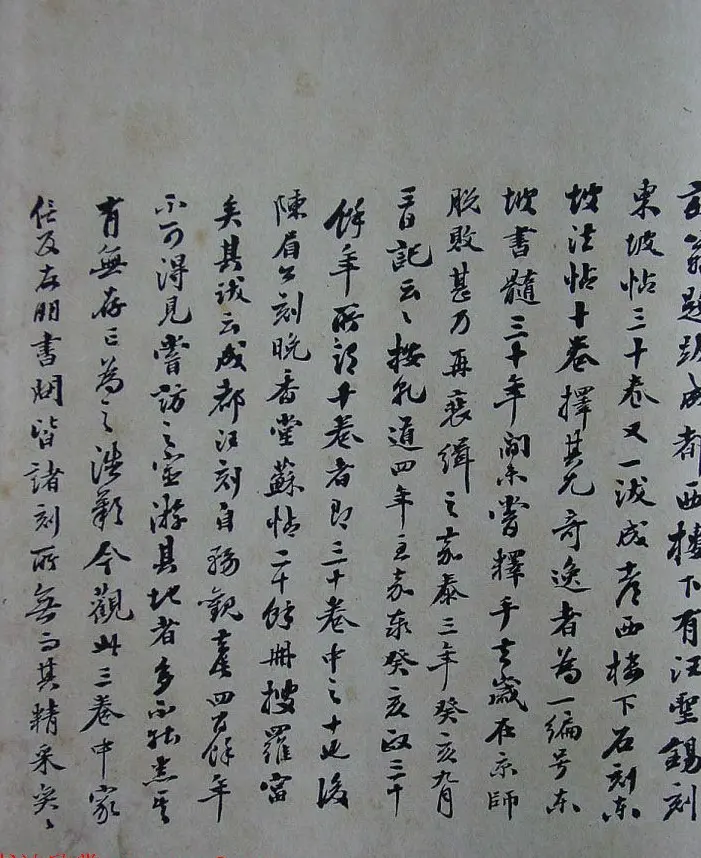 翁題跋成都西樓下有汪聖錫刻
東坡帖三十卷又一跋成都西樓下石刻東
坡法帖十卷擇其尤奇逸者為一編号東
坡書髓三十年間未嘗釋手去歲在京師
脱敗甚乃再裒緝之嘉泰三年癸亥九月
三日記云〻按乾道四年至嘉泰癸亥政三十
餘年所謂十卷者即三十卷中之十也後
陳眉公刻晚香堂蘇帖二十餘冊搜羅富
矣其跋云成都汪刻自四百餘年
不可得見嘗訪之宦游其地者多不能悉其
有無存亡為之浩歎今觀此三卷中家
任朋書皆諸刻所無而其精采奕〻